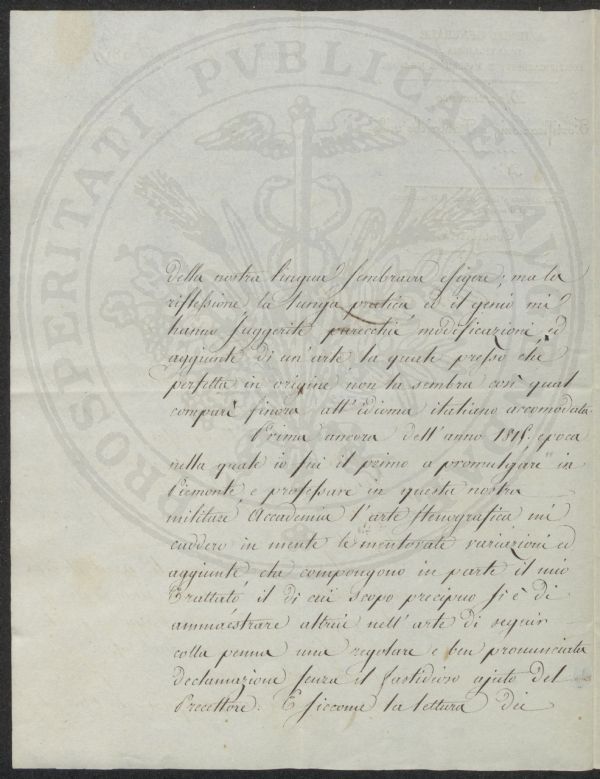 PROSPERITATI PVBLICAE
della nostra lingua sembrava esigere; ma la
riflessione la lunga pratica ed il genio mi
hanno suggerite parecchie modificazioni ed
aggiunte di un'arte la quale presso chè
perfetta in origine non la sembra così qual
compari finora all'idioma italiano accomodata
Prima ancora dell'anno 1815. epoca
nella quale io fui il primo a promulgare in
Piemonte e professare in questa nostra
militare Accademia l'arte stenografica mi
caddero in mente le mentovate variazioni ed
aggiunte che compongono in parte il mio
Trattato il di cui scopo precipuo si è di
ammaestrare altrui nell'arte di seguir
colla penna una regolare e ben pronunciata
declamazione senza il fastidioso ajuto del
Precettore. E siccome la lettura dei